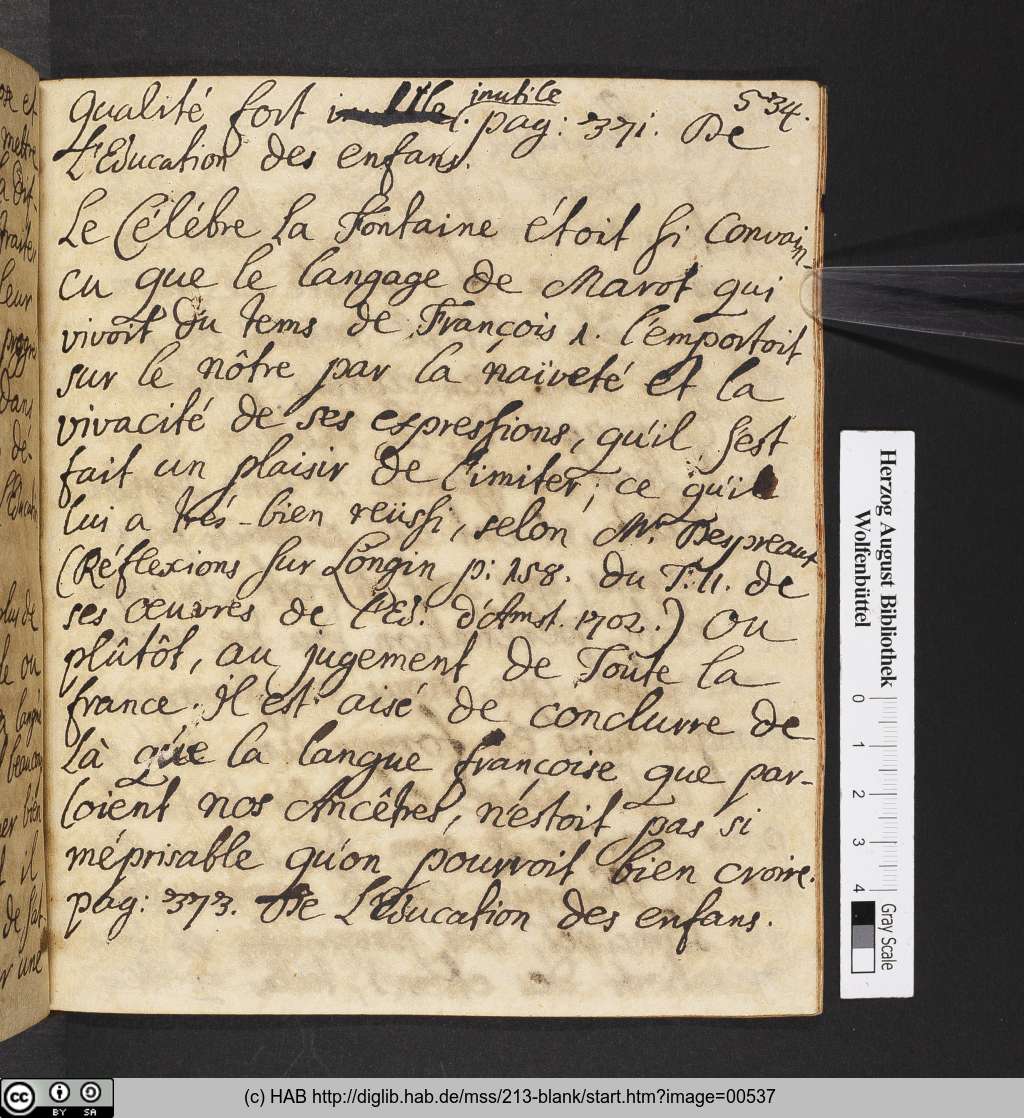 534.
inutile
qualité fort pag: 371. De
L'Education des enfans.
Le Célébre la Fontaine étoit si convain-
cu que le langage de Marot qui
vivoit du tems de François 1. l'emportoit
sur le nôtre par la naïveté et la
vivacité de ses expressions, qu'il s'est
fait un plaisir de l'imiter; ce qu'il
lui a trés-bien reüssi, selon Mr. Despreaux
(Réflexions sur Longin p: 158. du T: II. de
ses œuvres de l'Ed: d'Amst. 1702.) ou
plûtôt, au jugement de Toute la
france. il est aisé de conclurre de
là que la langue françoise que par-
loient nos Ancêtres, n'estoit pas si
méprisable qu'on pourroit bien croire.
pag: 373. De L'Education des enfans.
Herzog August Bibliothek
Wolfenbüttel
0 1 2 3 4
Gray Scale
cc BY SA
(c) HAB http://diglib.hab.de/mss/213-blank/start.htm?image=00537